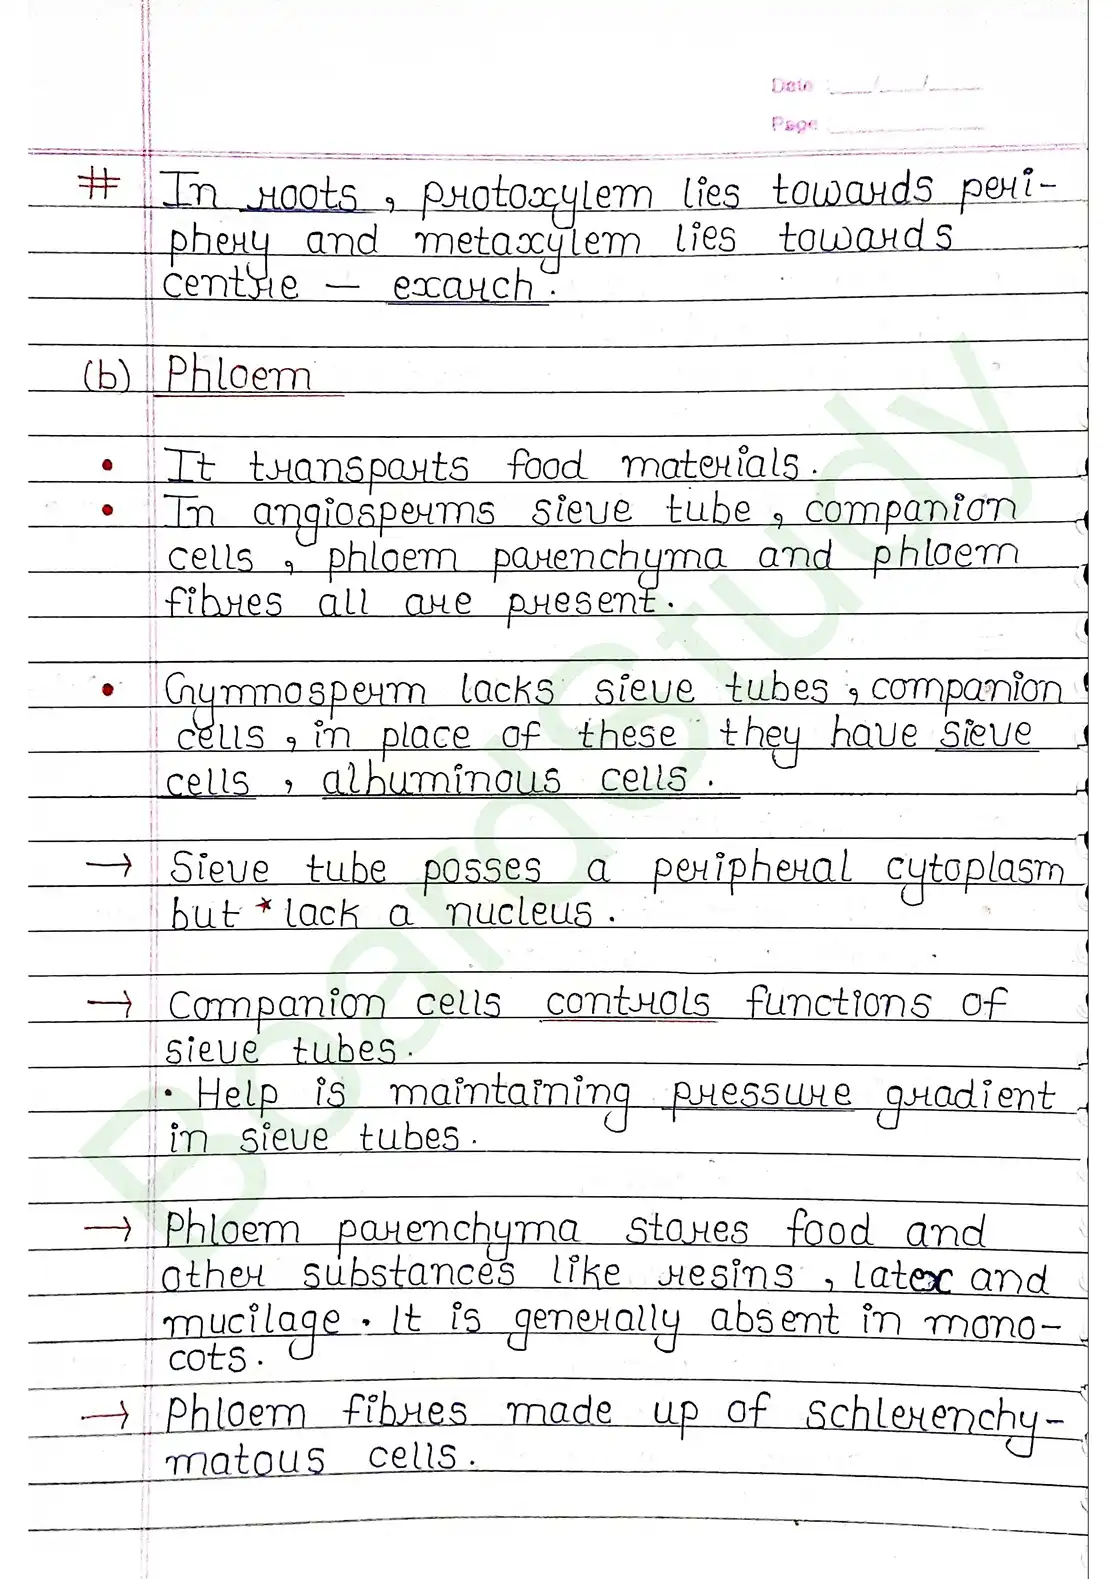 Date : __/__/__
Page : ______
# In roots, protoxylem lies towards peri-
phery and metaxylem lies towards
centre — exarch.
(b) Phloem
• It transparts food materials.
• In angiosperms sieve tube, companion
cells, phloem parenchyma and phloem
fibres all are present.
• Gymnosperm lacks sieve tubes, companion
cells, in place of these they have sieve
cells, albuminous cells.
→ Sieve tube posses a peripheral cytoplasm
but * lack a nucleus.
→ Companion cells controls functions of
sieve tubes.
• Help is maintaining pressure gradient
in sieve tubes.
→ Phloem parenchyma stores food and
other substances like resins, latex and
mucilage. It is generally absent in mono-
cots.
→ Phloem fibres made up of schlerenchy-
matous cells.
BoardStudy